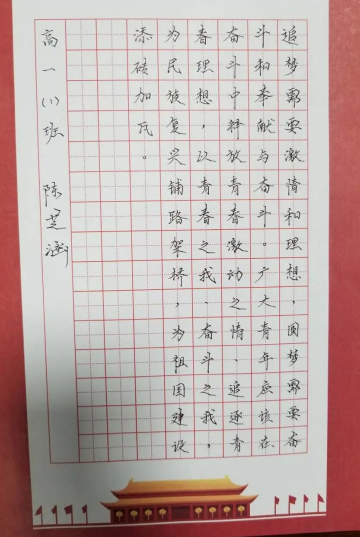 追梦需要激情和理想，圆梦需要奋
斗和奉献与奋斗。广大青年应该在
奋斗中释放青春激动之情、追逐青
春理想，以青春之我、奋斗之我，
为民族复兴铺路架桥，为祖国建设
添砖加瓦。
高一（1）班 陈芝涵